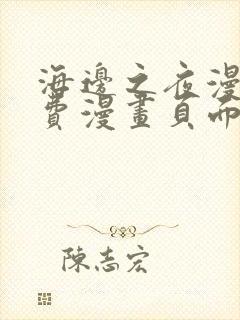 海邊之夜漫
費漫畫頁而
陳志宏